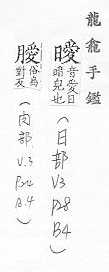 龍龕手鑑
曖 音愛日
暗皃也
(日部 V3 P28 B4)
俗烏
對反
(肉部 V.3 A.4)